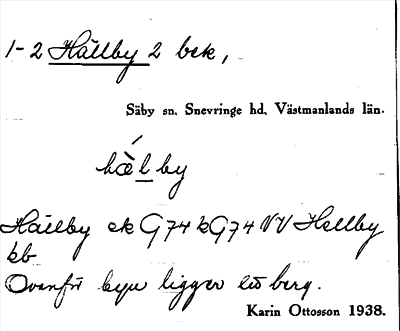 1-2 Hällby 2 bek,
Säby sn. Snevringe hd. Västmanlands län.
hæ̀lby
Hällby ek G74 kG74 NV Hellby
kb
Ovanför byn ligger ett berg.
Karin Ottosson 1938.